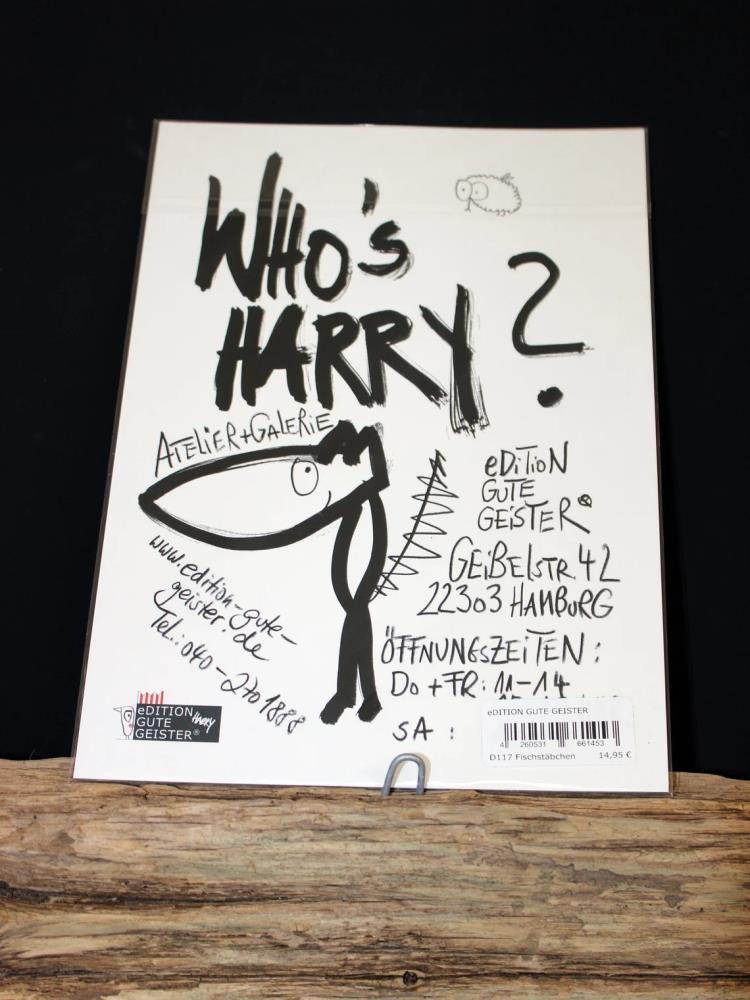 WHO'S
HARRY?
ATELIER+GALERIE
eDiTioN
GUTE
GEiSTER®
GEiBElSTR. 42
22303 HAMBURG
www.edition-gute-
geister.de
Tel.: 040-270 1888
ÖFFNUNGSZEiTEN:
Do + FR: 11-14
SA :
eDITION
GUTE
GEISTER®
HARRY
eDITION GUTE GEISTER
4 260531 661453
D117 Fischstäbchen 14,95 €